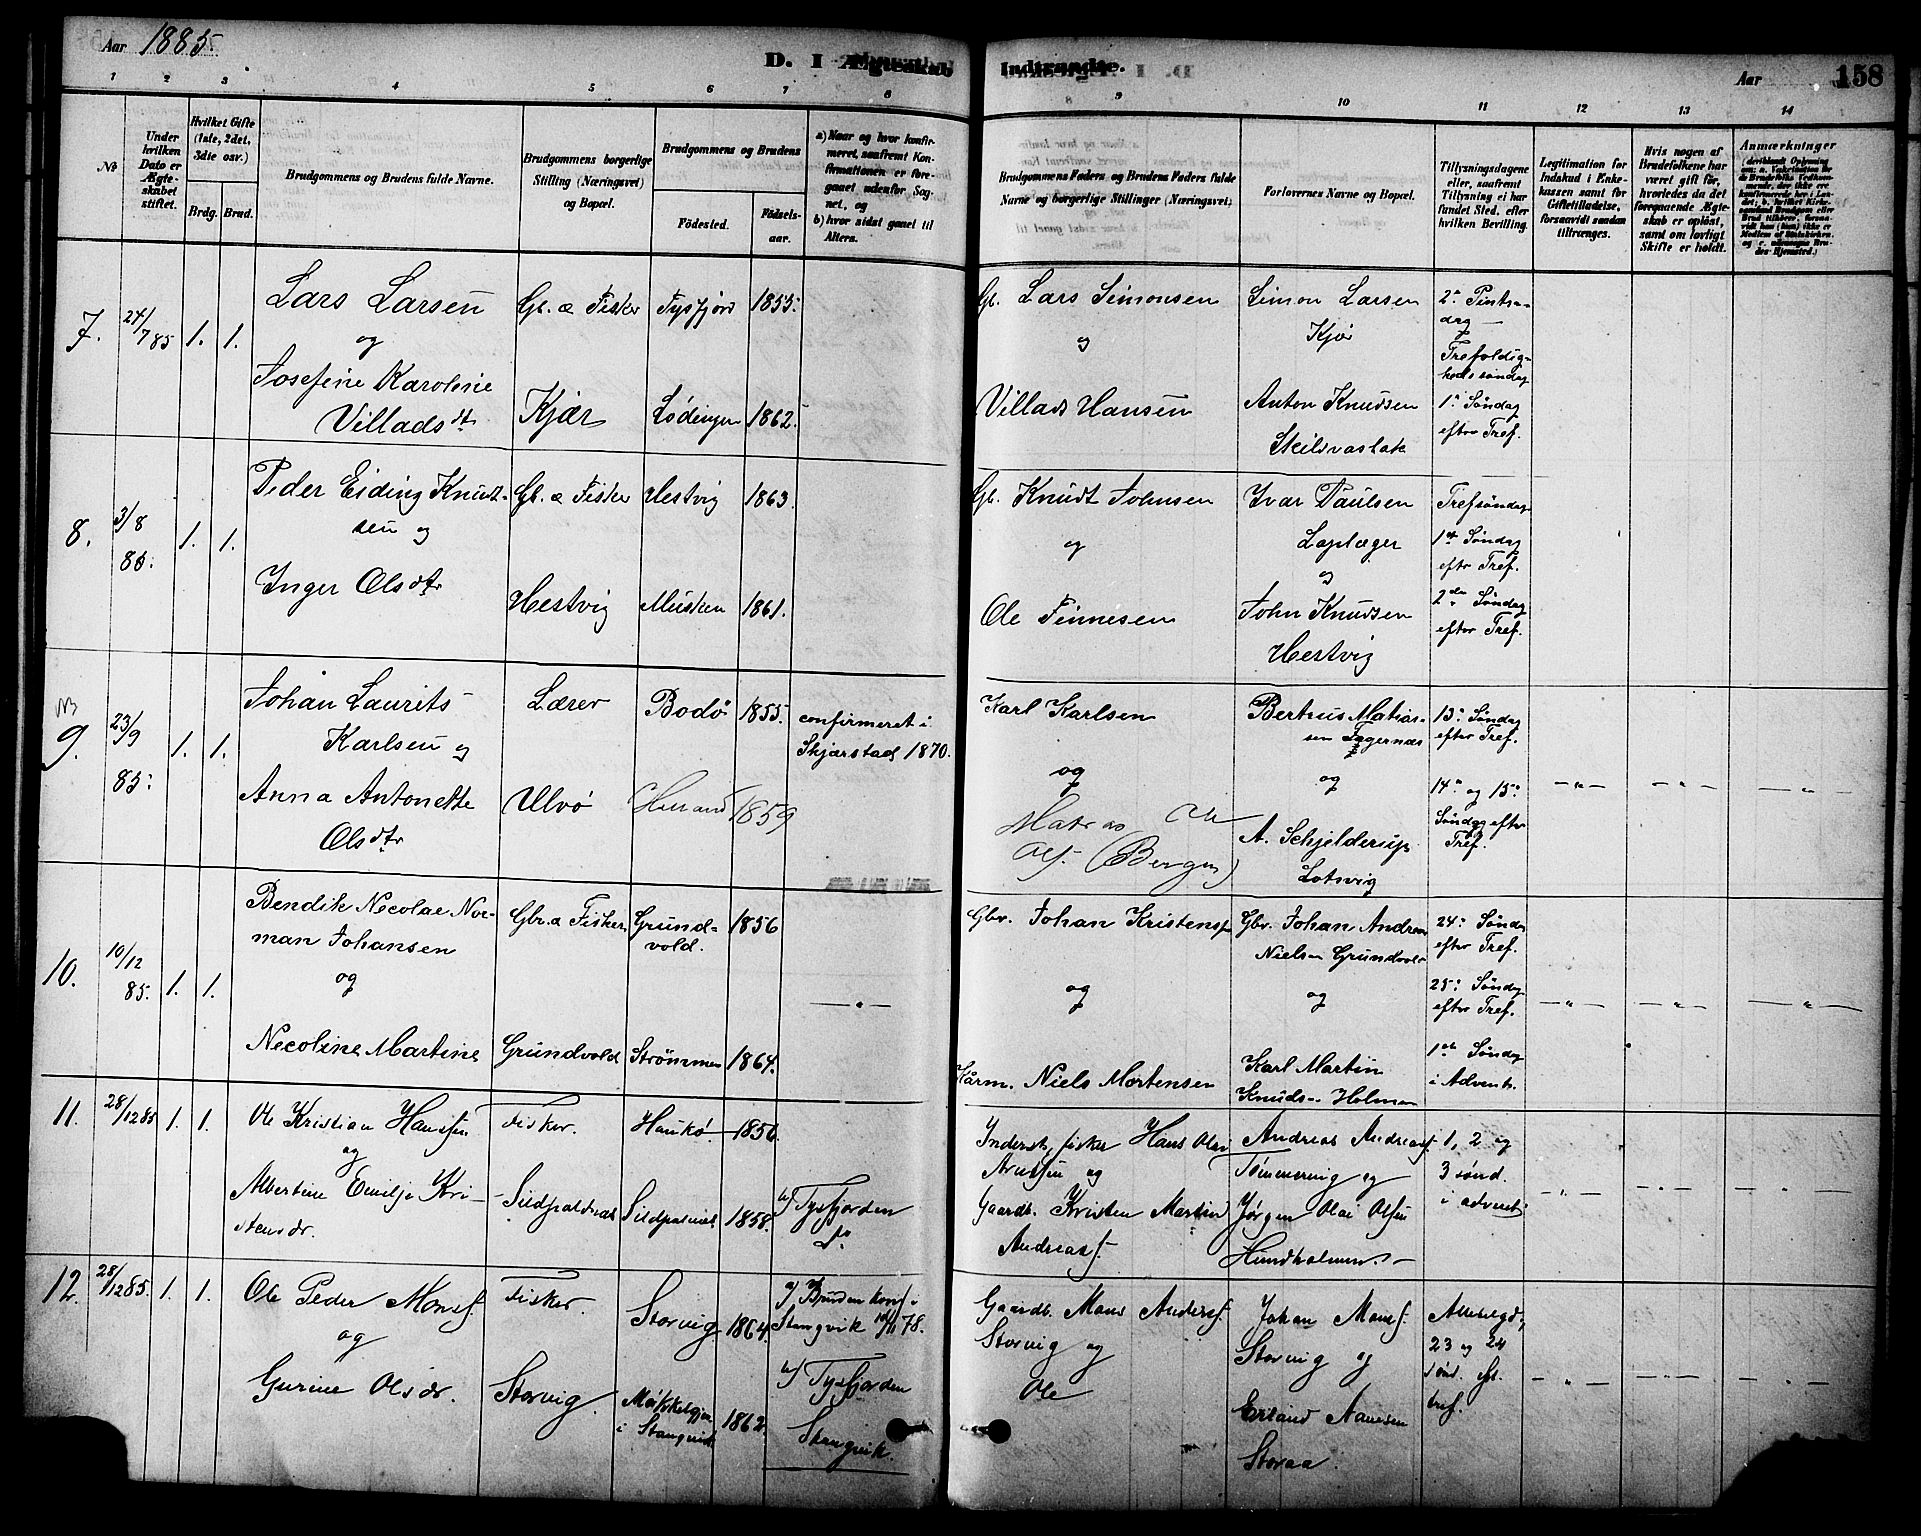 Aar 1885.
D. I Ægteskab
Indtraadte.
Aar
158
1 2 3 4 5 6 7 8
9 10 11 12 13 14
№
Under hvilken Dato er Ægteskabet stiftet.
Hvilket Gifte (1ste, 2det, 3die osv.)
Brdg. Brud.
Brudgommens og Brudens fulde Navne.
Brudgommens borgerlige Stilling (Næringsvei) og Bopæl.
Brudgommens og Brudens
Födested.
Födsels-aar.
a) Naar og hvor konfirmeret, saafremt Konfirmationen er foregaaet udenfor Sognet, og
b) hvor sidst gaaet til Alters.
Brudgommens Faders og Brudens Faders fulde Navne og borgerlige Stillinger (Næringsvei)
Forlovernes Navne og Bopæl.
Tillysningsdagene eller, saafremt Tillysning ei har fundet Sted, efter hvilken Bevilling.
Legitimation for Indskud i Enkekassen samt for Giftetilladelse, forsaavidt saadan tiltrænges.
Hvis nogen af Brudefolkene har været gift för, hvorledes da det foregaaende Ægteskab er oplöst, samt om lovligt Skifte er holdt.
Anmærkninger
7. 24/7 85 1. 1.
Lars Larsen
og
Josefine Karoline
Villadsdt
Gb. & Fisker
Kjær
Tysfjord 1855.
Lödingen 1862.
Gb. Lars Simonsen
og
Villads Hansen
Simon Larsen
Kjör
Anton Knudsen
2n Pintsedag
og
Trefoldigheds söndag
1n Söndag
efter Tref.
8. 3/8 85. 1. 1.
Peder Eiding Knudtsen og
Inger Olsdtr
Gb. & Fisker
Hestvig
Hestvig 1863.
Musken 1861.
Gb. Knudt Johnsen
og
Ole Finnesen
Ivar Paulsen
Laplæger
og
John Knudsen
Hestvig
Trefsöndag
1ste Söndag
efter Tref.
2den Söndag
efter Tref.
9. 23/9 85. 1. 1.
Johan Laurits
Karlsen og
Anna Antonette
Olsdtr
Lærer
Ulvö
Bodö 1855.
1859
confirmeret i
Skjærstad 1870.
Karl Karlsen
og
(Bergen)
Berteus Matiassen Fagernæs
og
A. Schjelderup
Lotsvig
13n Söndag
efter Tref.
14n og 15n
Söndag efter
Tref.
10. 10/12 85. 1. 1.
Bendik Necolae Norman Johansen
og
Necoline Martine
Gbr. & Fisker
Grundvold
Grundvold. 1856
Strömmen 1864.
Gbr. Johan Kristensen
og
Niels Mortensen
Gbr. Johan Andreas
Nielsen Grundvold
og
Karl Martin
Knudsen Holmen
24n Söndag
efter Tref.
25n Söndag
efter Tref.
1ste Söndag
i Advent.
11. 28/12 85 1. 1.
Ole Kristian Hansen
og
Albertine Emilje Kristensdr.
Fisker.
Sildpaldnæs
Haukö 1856.
Sildpaldnæs 1858.
b) Tysfjorden
Inderst, fisker Hans Olai
Arntsen og
Gaardb. Kristen Martin
Andreass.
Andreas Andreass.
Tömmervig og
Jörgen Olai Olsen
Hundholmen
1, 2 og
3 sönd.
i advent
12. 28/12 85. 1. 1.
Ole Peder Monss.
og
Gurine Olsdr.
Fisker.
Storvig
Storvig 1864.
i Stangvik 1862.
a) Bruden konf i
Stangvik 78.
b) Tysfjorden
Stangvik.
Gaardb. Mons Anderss.
Storvig og
Ole
Johan Monss.
Storvig og
Erland
Storaa.
Allehelgd,
23 og 24
sönd. eft.
tref.